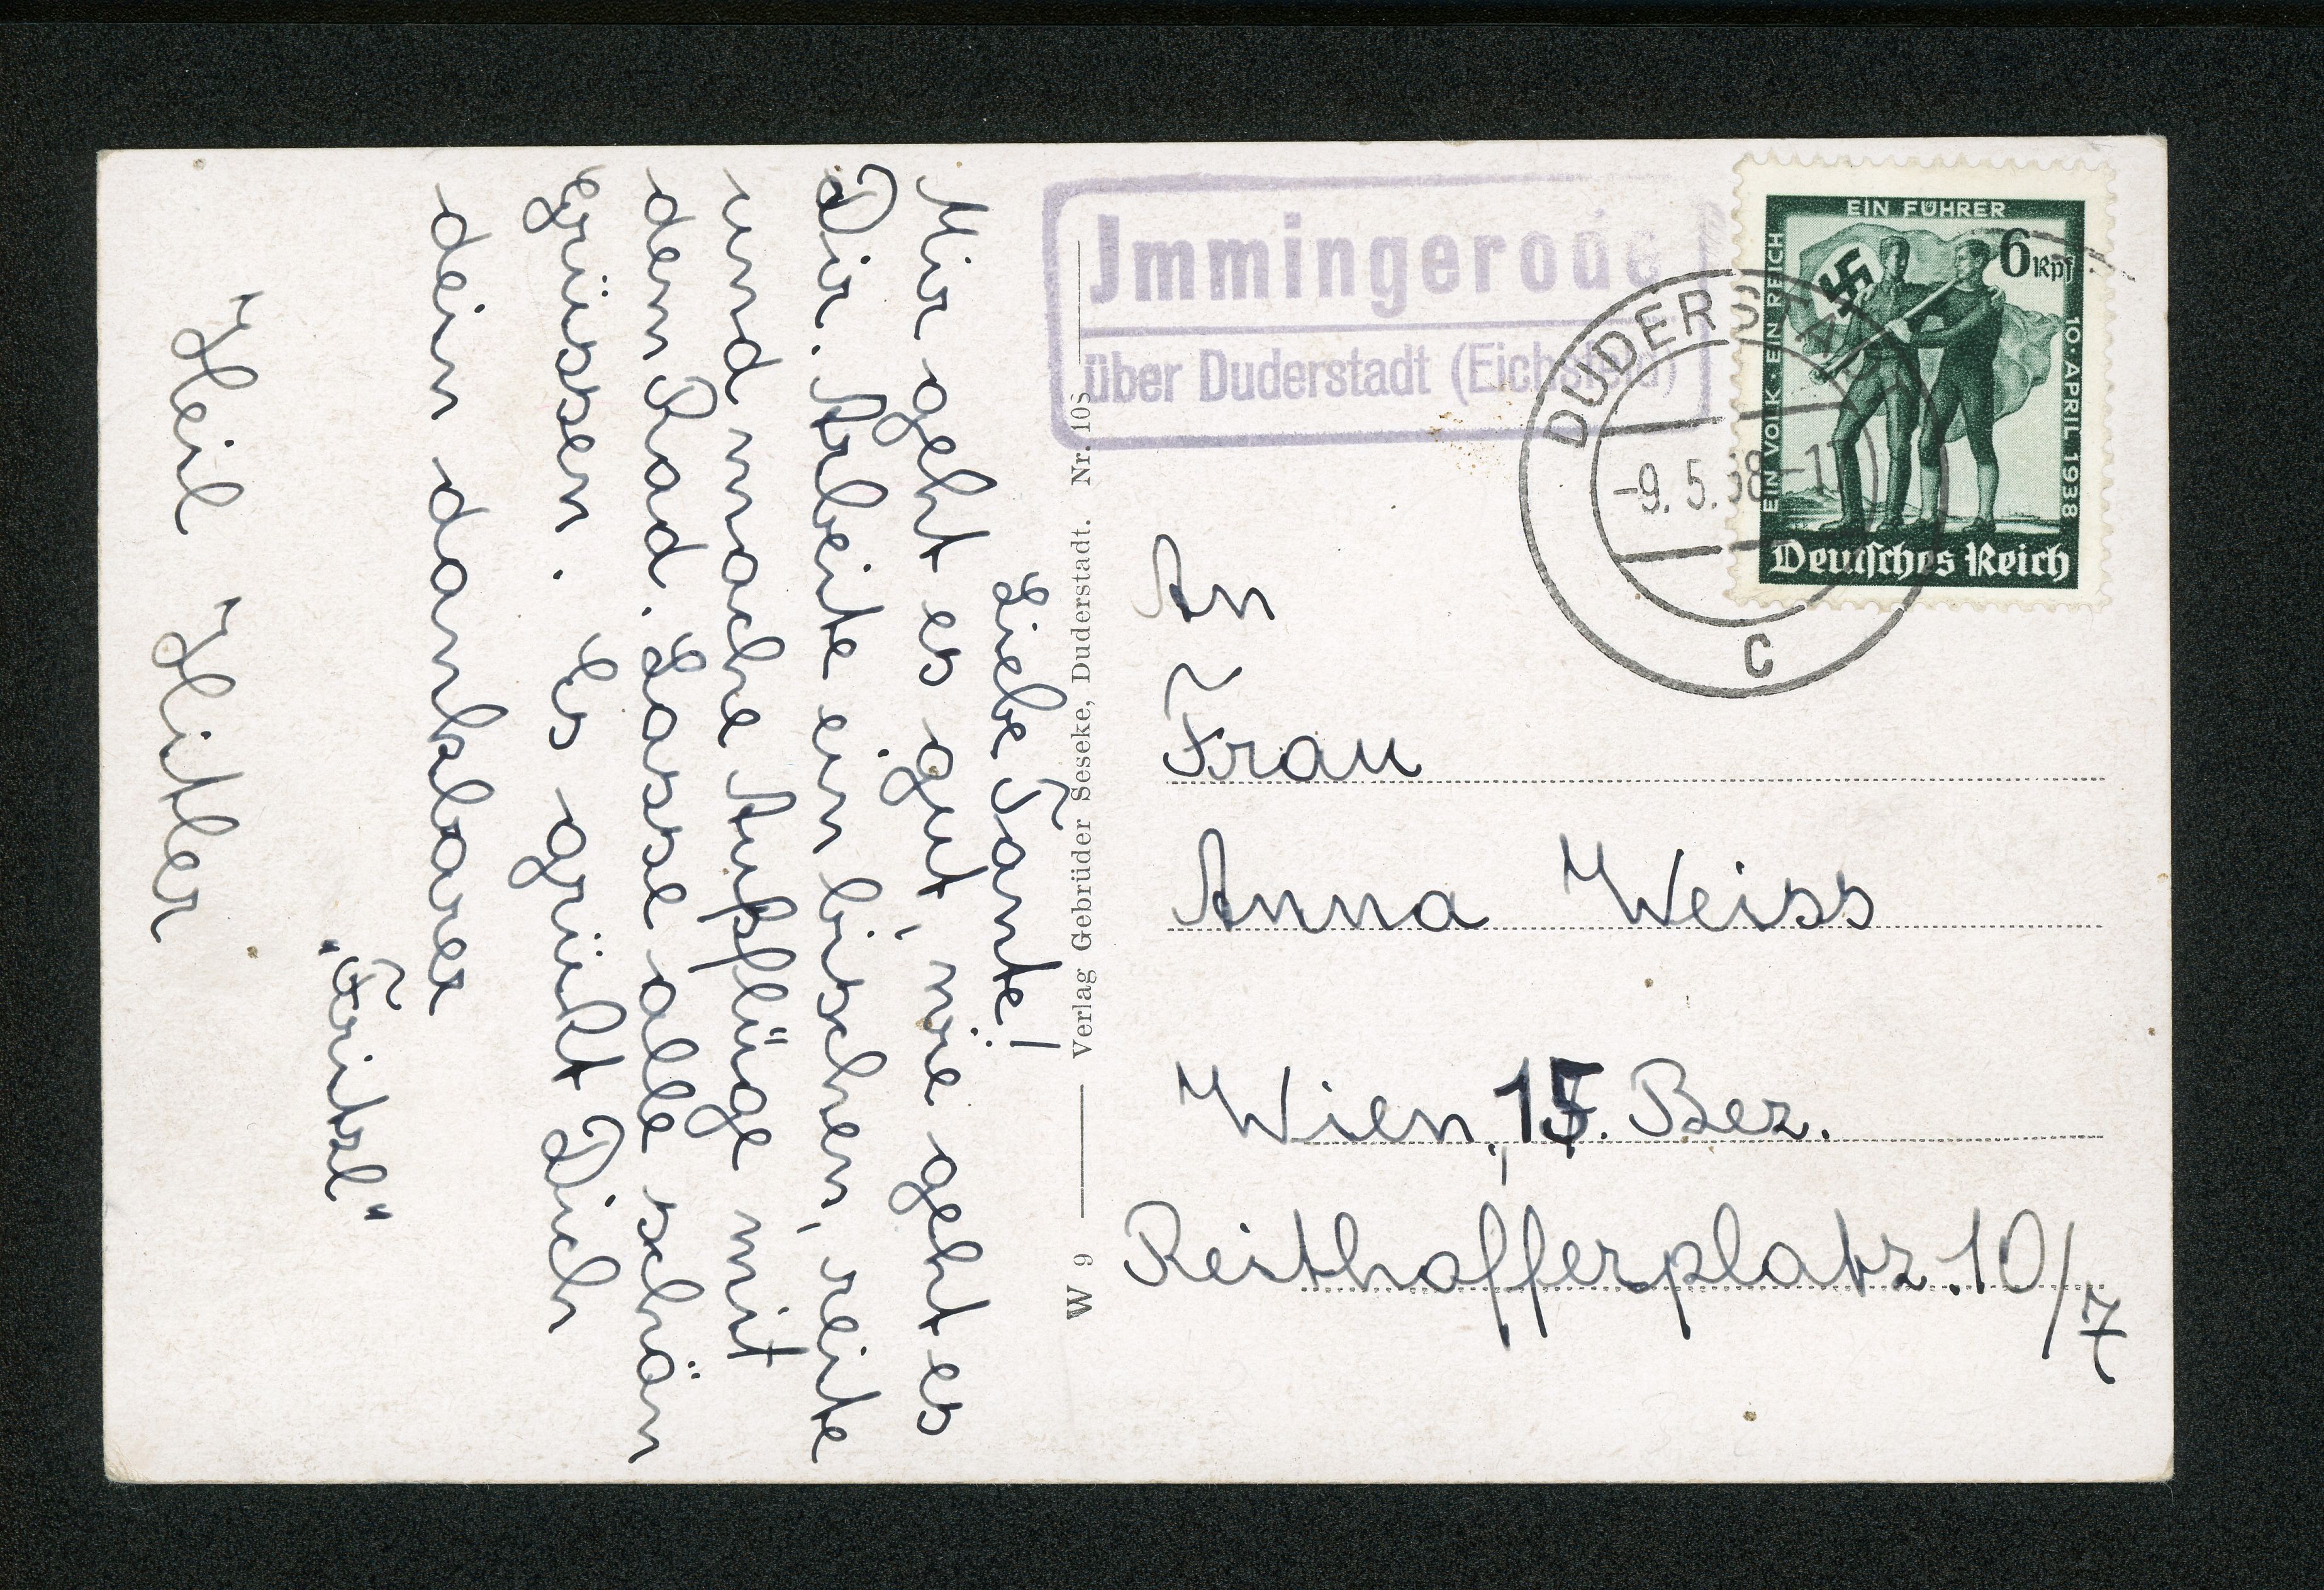 Jmmingerode
über Duderstadt (Eichsfeld)
EIN FÜHRER
EIN VOLK · EIN REICH
10 · APRIL 1938
6 Rpf
Deutsches Reich
DUDERSTADT
-9. 5. 38-1
c
Liebe Tante!
Mir geht es gut, wie geht es
Dir. Arbeite ein bischen, reite
und mache Ausflüge mit
dem Rad. Lasse alle schön
grüssen. Es grüßt Dich
dein dankbarer
„Fritzl“
Heil Hitler
W 9
Verlag Gebrüder Seseke, Duderstadt. Nr. 108
An
Frau
Anna Weiss
Wien, 15. Bez.
Reithofferplatz. 10/7